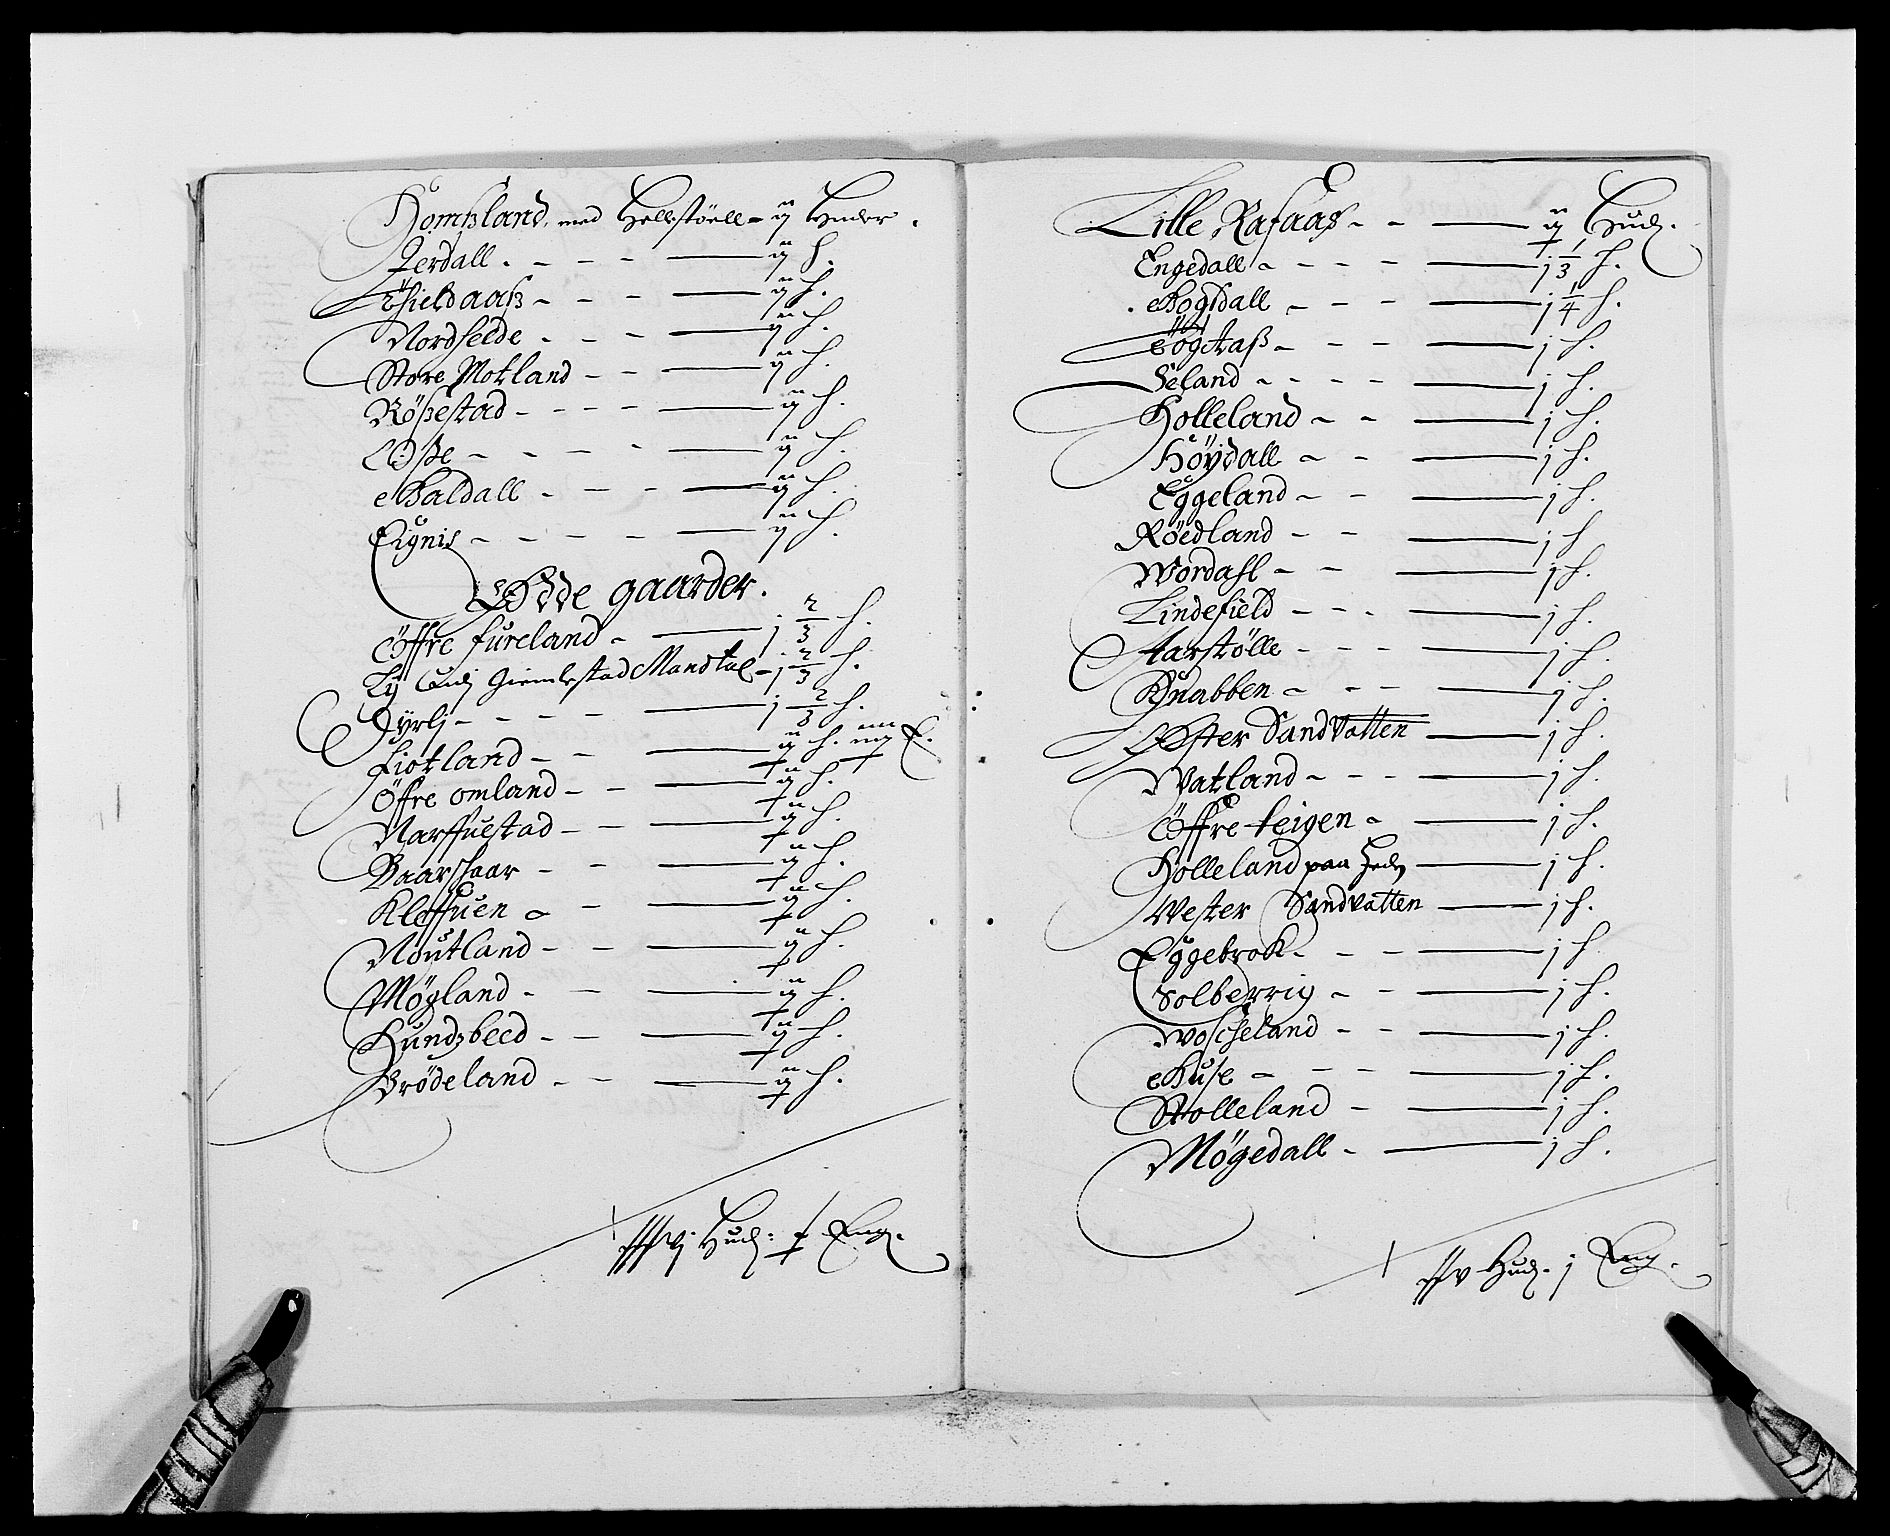 Homßland, med Hellestöell - ij Huder.
Jerdall. - - - - ij h.
Nordhelde - - - ij h.
Store Motland - - ij h.
Rößestad - - - - ij h.
Oße - - - - ij h.
Baldall - - - ij h.
Eignis - - - - ij h.
Øde gaarder.
Öffre fureland - j 2/3 h.
Ly Giemlestad Mandtal - j 2/3 h.
Dyrlj - - - - j 2/3 h.
Fiotland - - ij h. E.
Öfre omland - - h.
Narffuestad - - h.
Baarshaar - - h.
Kleffuen - - h.
Noutland - - h.
Mögland - - h.
Hundsbeed - - h.
Brödeland - - h.
Hud: Eng.
Lille Rafaas - - Hud.
Engedall - - - - j 1/3 h.
Bogsdall - - - j 1/4 h.
Seland - - - - j h.
Holleland - - j h.
Höydall - - j h.
Eggeland - - j h.
Röedland - - j h
Wordahl - - j h.
Lindefield - - - j h.
Aarstölle - - - j h.
Knabben - - - j h.
Öster Sandvatten j h.
Watland - - - j h.
Öffre teigen - j h.
Holleland paa Heden j h.
Wester Sandvatten j h.
Eggebrok - - - j h.
Solberrig - - j h.
Woscheland - - j h.
Huse - - - j h.
Stolleland - j h.
Mögedall - j h.
Hud. j Eng.